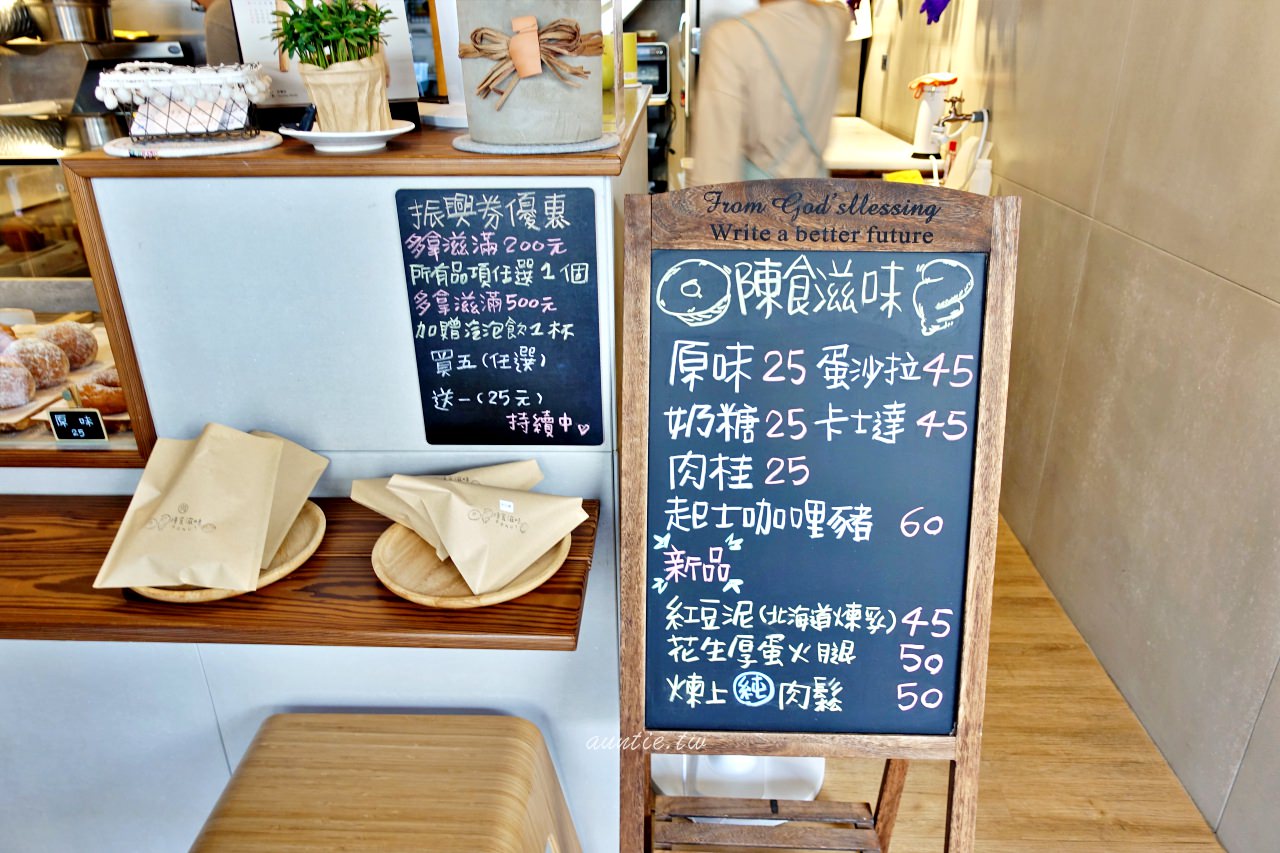 振興券優惠
多拿滋滿200元
所有品項任選1個
多拿滋滿500元
加贈泡泡飲1杯
買五(任選)
送一(25元)
持續中
原味
25
陳食滋味
From God'sBlessing
Write a better future
陳食滋味
原味 25 蛋沙拉 45
奶糖 25 卡士達 45
肉桂 25
起士咖哩豬 60
新品
紅豆泥(北海道煉乳) 45
花生厚蛋火腿 50
煉上純肉鬆 50
auntie.tw